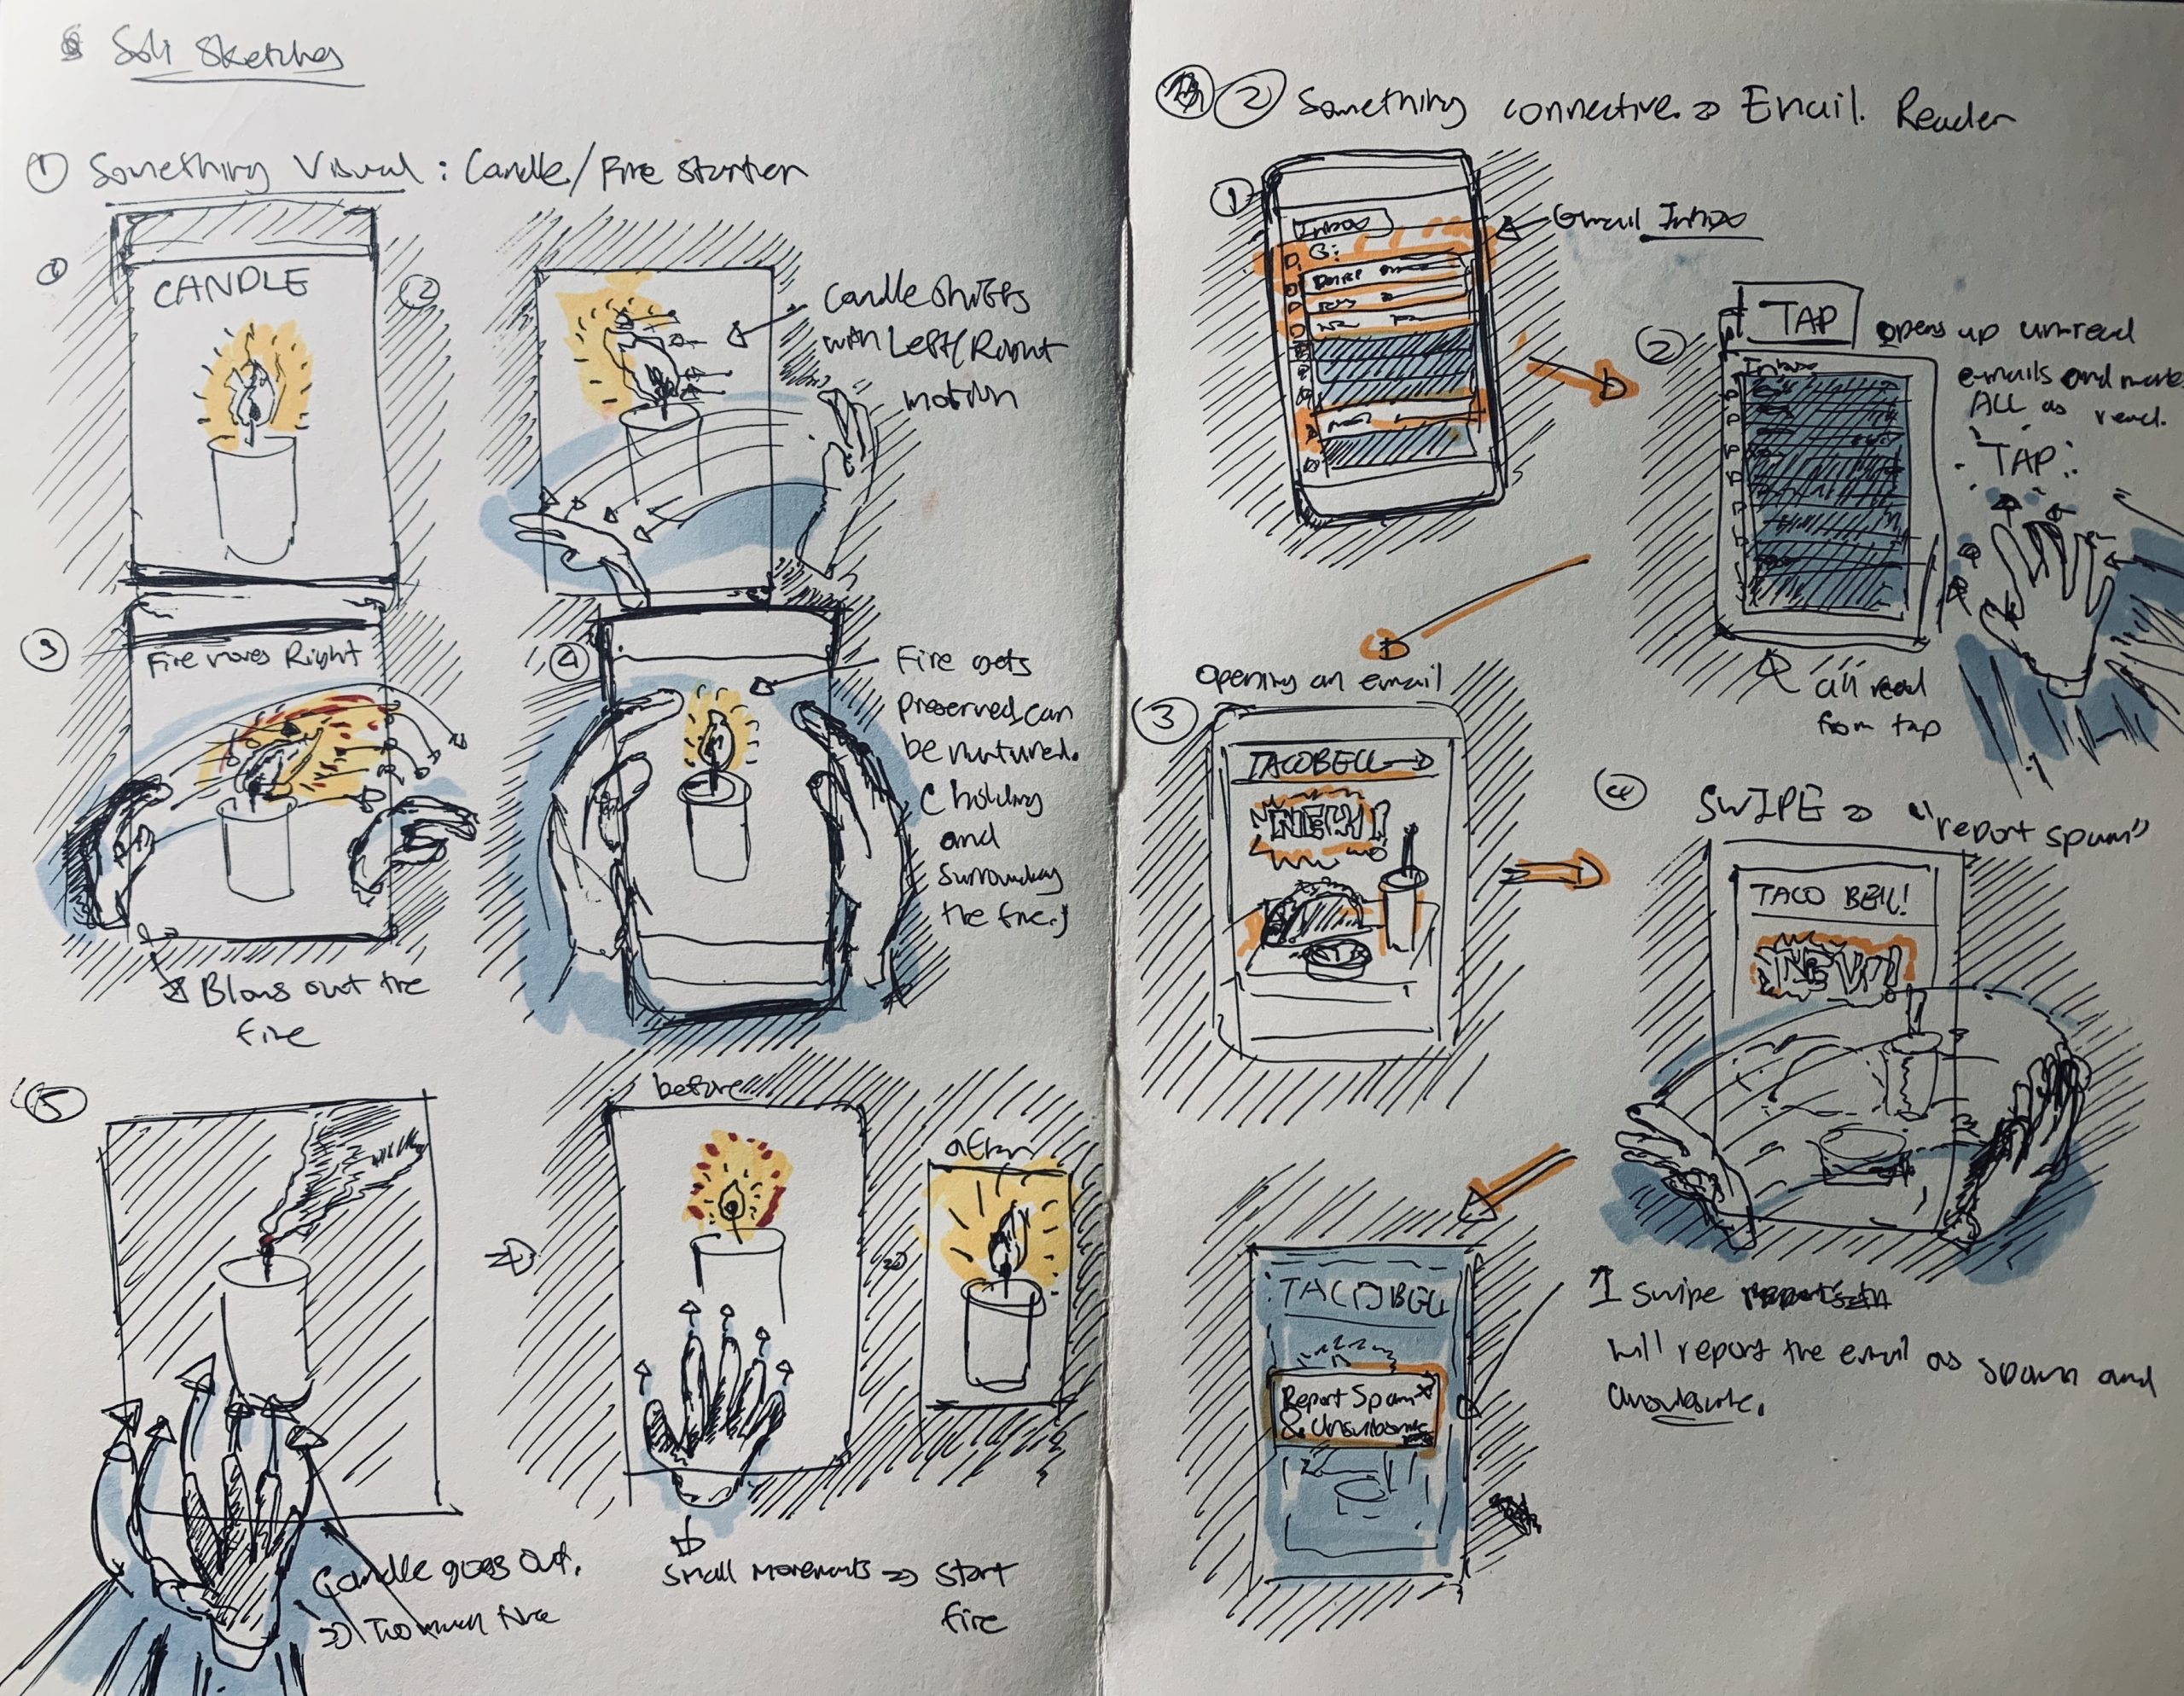 Soli Sketches
① Something Visual : Candle/Fire Starter
①
CANDLE
②
Candle shifts
with Left/Right
motion
③
Fire moves Right
Blows out the
fire
④
Fire gets
preserved, can
be nurtured.
(holding
and
surrounding
the fire.)
⑤
Candle goes out.
⇒ Too much fire
before
after
small movements ⇒ start
fire
② Something connective → Email Reader
①
Inbox
Gmail Inbox
②
TAP
opens up unread
emails and marks
ALL as read.
Inbox
TAP
all read
from tap
opening an email
③
TACOBELL →
NEW!
④
SWIPE → "report spam"
TACO BELL!
NEW!
↑ swipe
will report the email as spam and
unsubscribe.
TACOBELL
Report Spam
& Unsubscribe